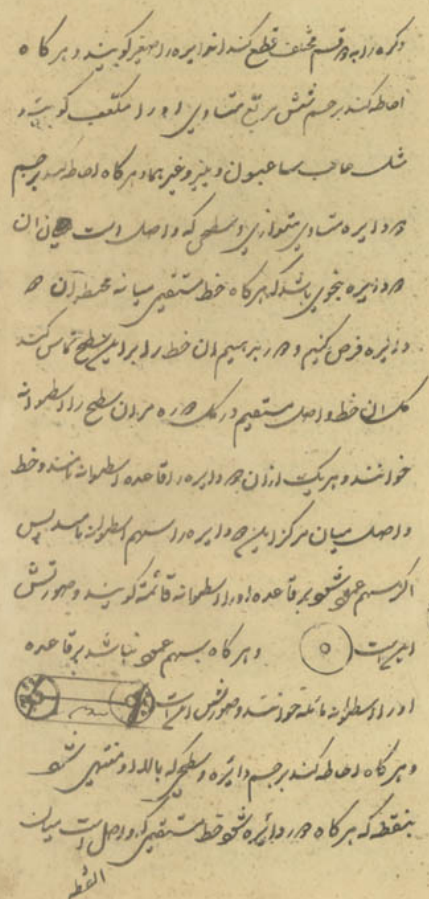 وکره را به دو قسم مختلف قطع کند آن دایره را صغیر گویند و هر گاه
احاطه کند بر جسم شش مربع متساوی او را مکعب گویند و
مثل صابون و غیر هما و هر گاه احاطه کند بر جسم
دو دایره متساوی متوازی و سطحی که واصل است میان آن
دو دایره بنحوی باشد که هر گاه خط مستقیمی میانه محیط آن دو
دایره فرض کنیم و هر سهیم آن خط را بر این سطح تماس کند
کل آن خط واصل مستقیم در کل دوره مر آن سطح را اسطوانه
خوانند و هر یک از آن دو دایره را قاعده اسطوانه نامند و خط
واصل میان مرکز این دو دایره را سهم اسطوانه نامند پس
اگر سهم عمود شود بر قاعده او را اسطوانه قائمه گویند و صورتش
این است و هر گاه سهم عمود نباشد بر قاعده
او را اسطوانه مائله خوانند و صورتش این است
و هر گاه احاطه کند بر جسم دائره و سطحی که بالا رود منتهی شود
بنقطه که هر گاه در دائره شود خط مستقیمی که واصل است میان
النقطه